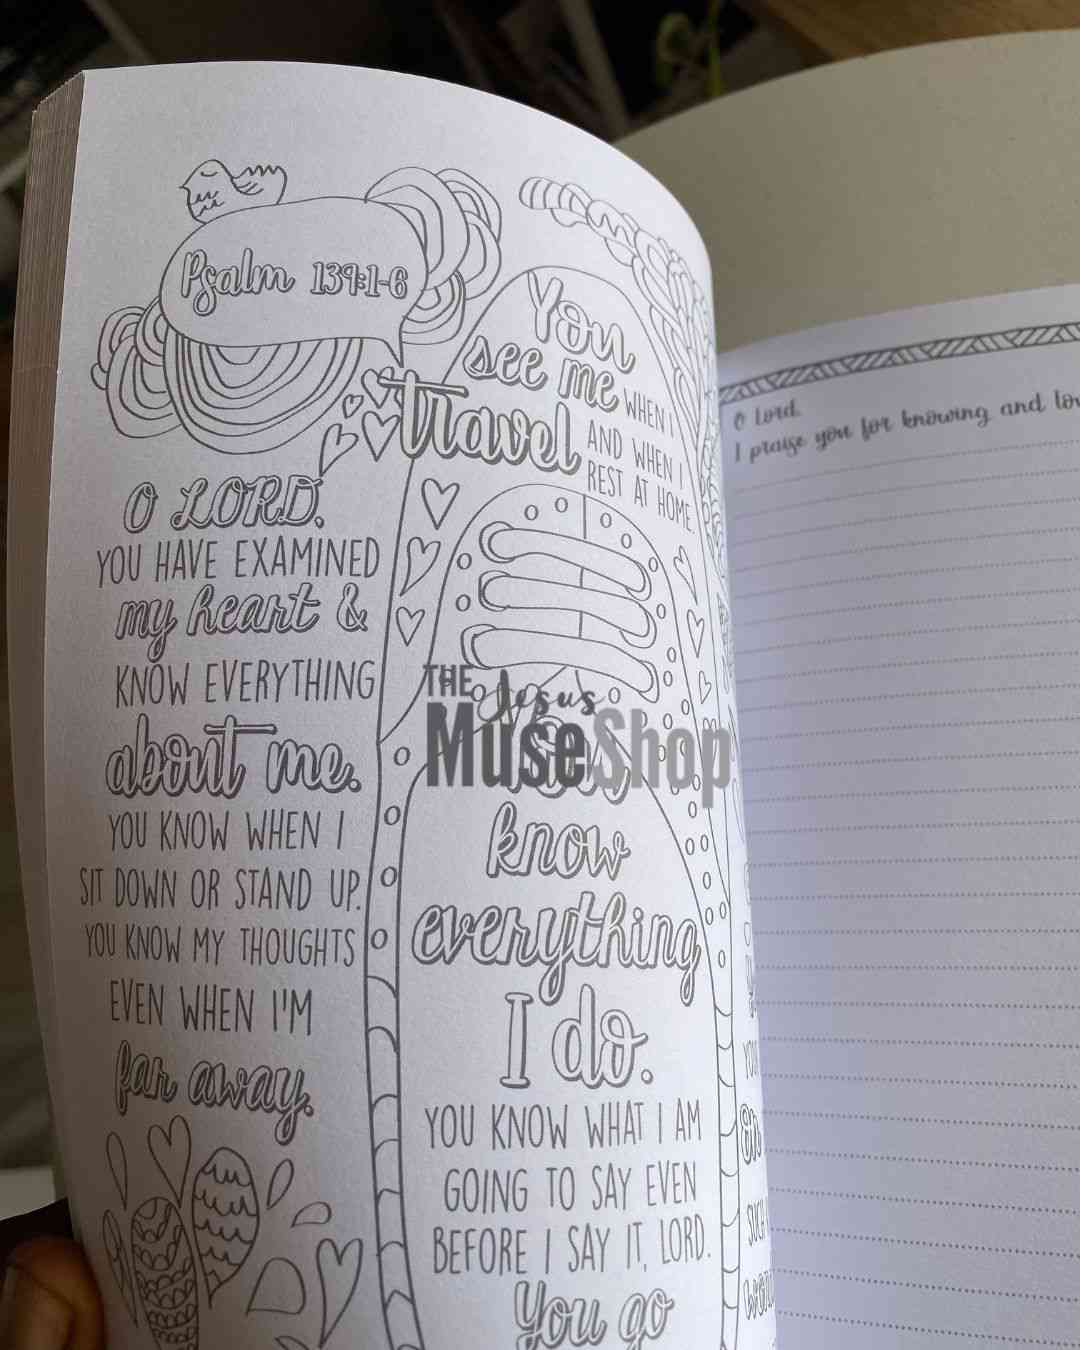 Psalm 139:1-6
O LORD,
YOU HAVE EXAMINED
my heart &
KNOW EVERYTHING
about me.
YOU KNOW WHEN I
SIT DOWN OR STAND UP.
YOU KNOW MY THOUGHTS
EVEN WHEN I'M
far away.
You
see me
travel
WHEN I
AND WHEN I
REST AT HOME.
know
everything
I do.
YOU KNOW WHAT I AM
GOING TO SAY EVEN
BEFORE I SAY IT, LORD.
You go
THE Jesus
MuseShop
O Lord,
I praise you for knowing and